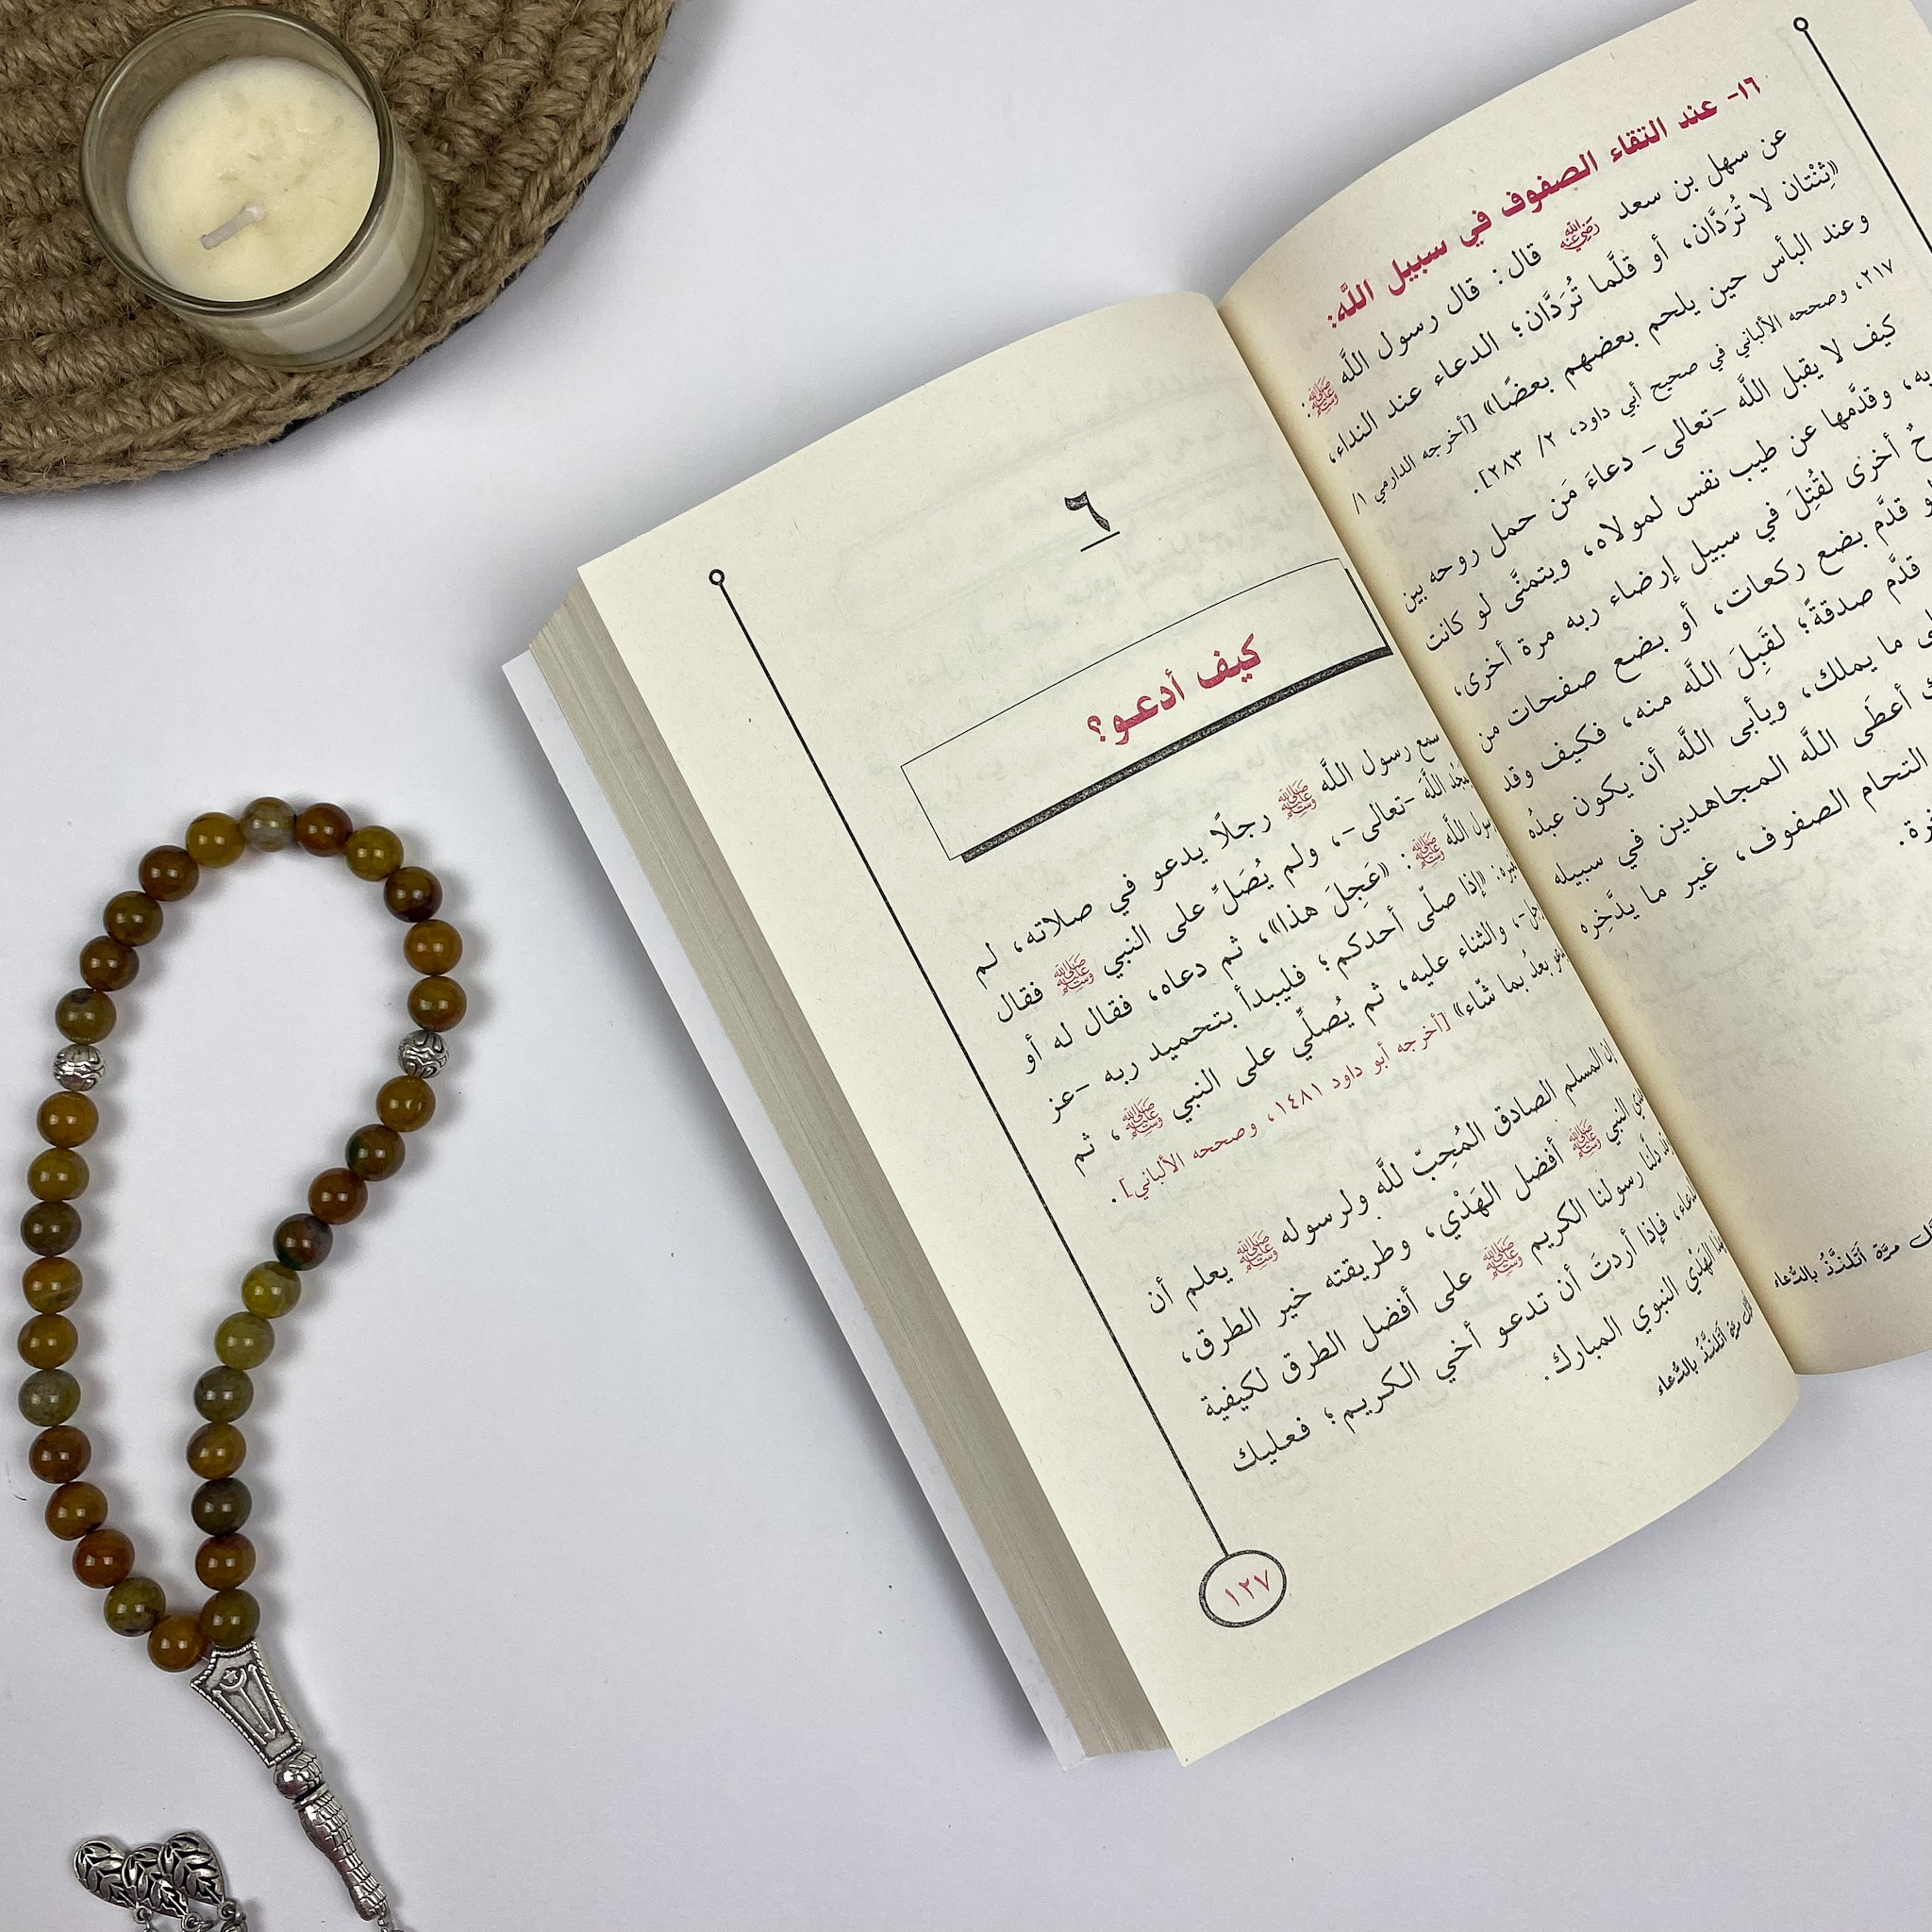 ١٦- عند التقاء الصفوف في سبيل اللَّه:
عن سهل بن سعد رضي الله عنه قال: قال رسول اللَّه ﷺ:
«ثِنْتان لا تُرَدَّان، أو قلَّما تُرَدَّان؛ الدعاء عند النداء،
وعند البأس حين يلحم بعضهم بعضًا» [أخرجه الدارمي ١/
٢١٧، وصححه الألباني في صحيح أبي داود، ٢/ ٢٨٣].
كيف لا يقبل اللَّه -تعالى- دعاءَ مَن حمل روحه بين
وقدَّمها عن طيب نفس لمولاه، ويتمنَّى لو كانت
أخرى لقُتِلَ في سبيل إرضاء ربه مرة أخرى،
قدَّم بضع ركعات، أو بضع صفحات من
قدَّم صدقةً؛ لقَبِلَ اللَّه منه، فكيف وقد
ما يملك، ويأبى اللَّه أن يكون عبدُه
أعطَى اللَّه المجاهدين في سبيله
التحام الصفوف، غير ما يدَّخِره
مرَّة أتلذَّذُ بالدُّعاء
٦
كيف أدعو؟
سمع رسول اللَّه ﷺ رجلًا يدعو في صلاته، لم
يُمَجِّد اللَّهَ -تعالى-، ولم يُصَلِّ على النبي ﷺ فقال
رسول اللَّه ﷺ: «عَجِلَ هذا»، ثم دعاه، فقال له أو
لغيره: «إذا صلَّى أحدكم؛ فليبدأ بتحميد ربه -عز
وجل-، والثناء عليه، ثم يُصلِّي على النبي ﷺ، ثم
يدعو بعدُ بما شاء» [أخرجه أبو داود ١٤٨١، وصححه الألباني].
إن المسلم الصادق المُحِبّ للَّه ولرسوله ﷺ يعلم أن
هدي النبي ﷺ أفضل الهَدْي، وطريقته خير الطرق،
دلَّنا رسولنا الكريم ﷺ على أفضل الطرق لكيفية
الدعاء، فإذا أردتَ أن تدعو أخي الكريم؛ فعليك
بهذا الهَدْي النبوي المبارك.
مرَّة أتلذَّذُ بالدُّعاء
١٢٧